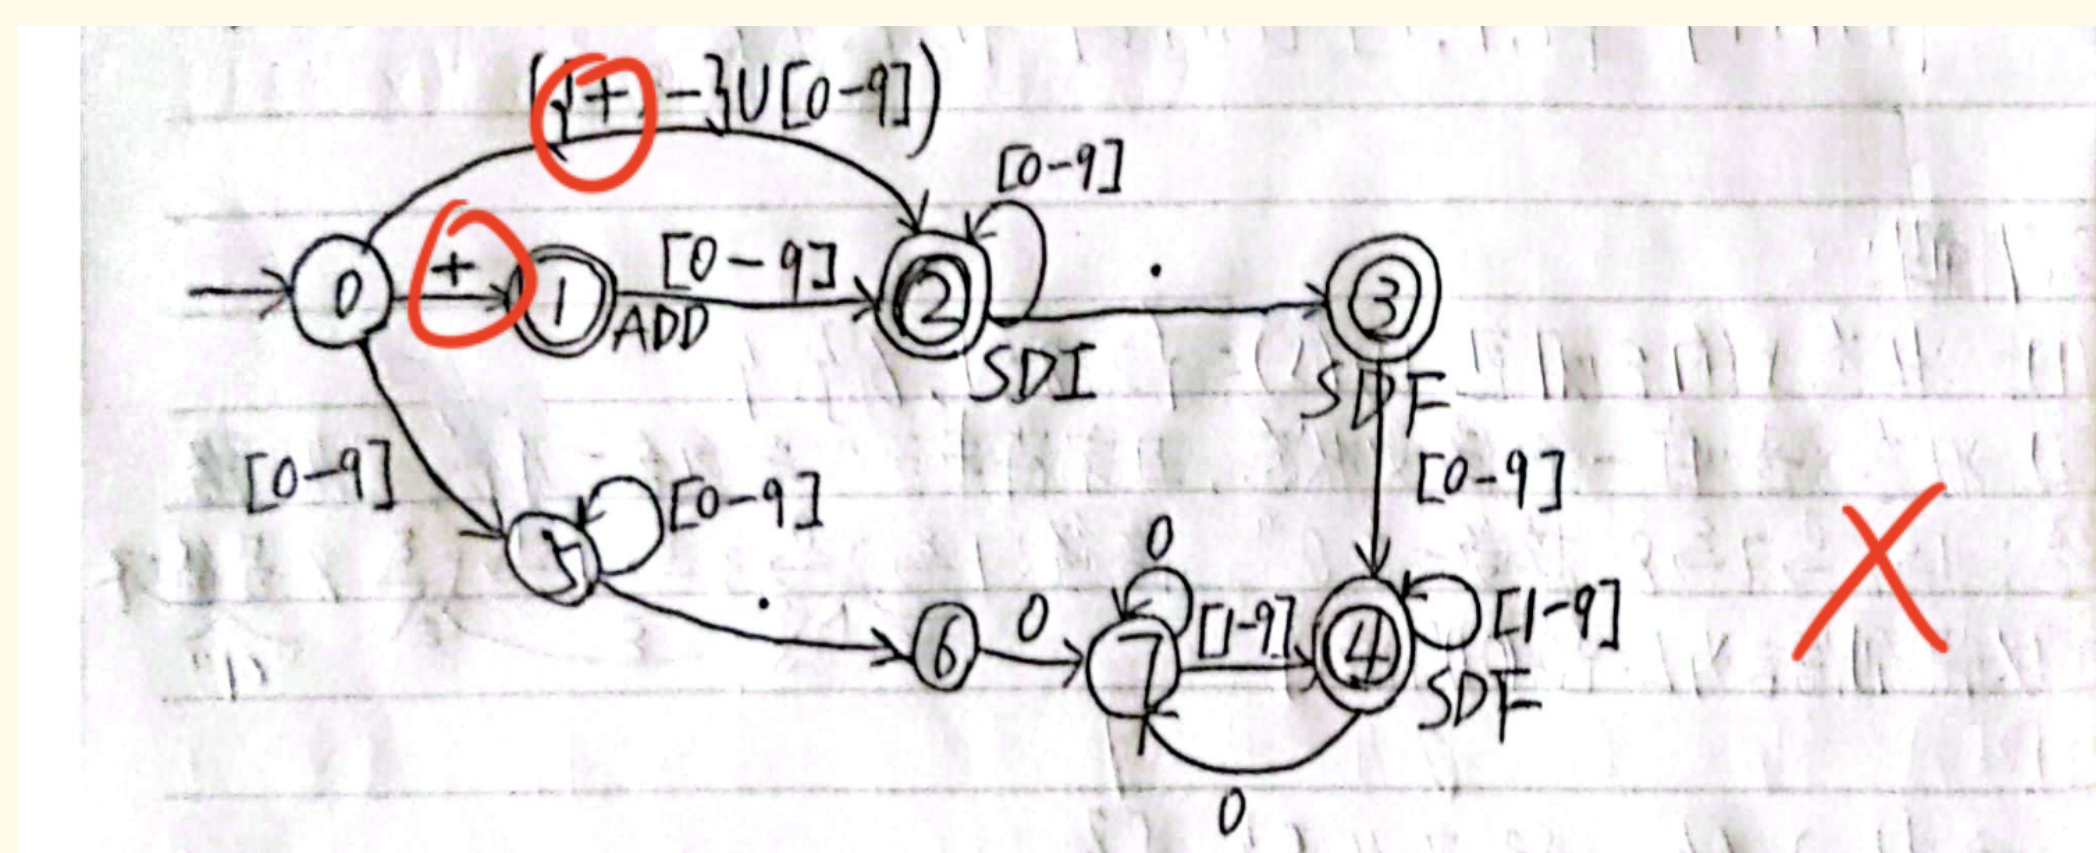 ({+, -}U[0-9])
[0-9]
0
+
1
ADD
[0-9]
2
SDI
.
3
SDF
[0-9]
[0-9]
5
[0-9]
.
6
0
7
0
[1-9]
4
[1-9]
SDF
0